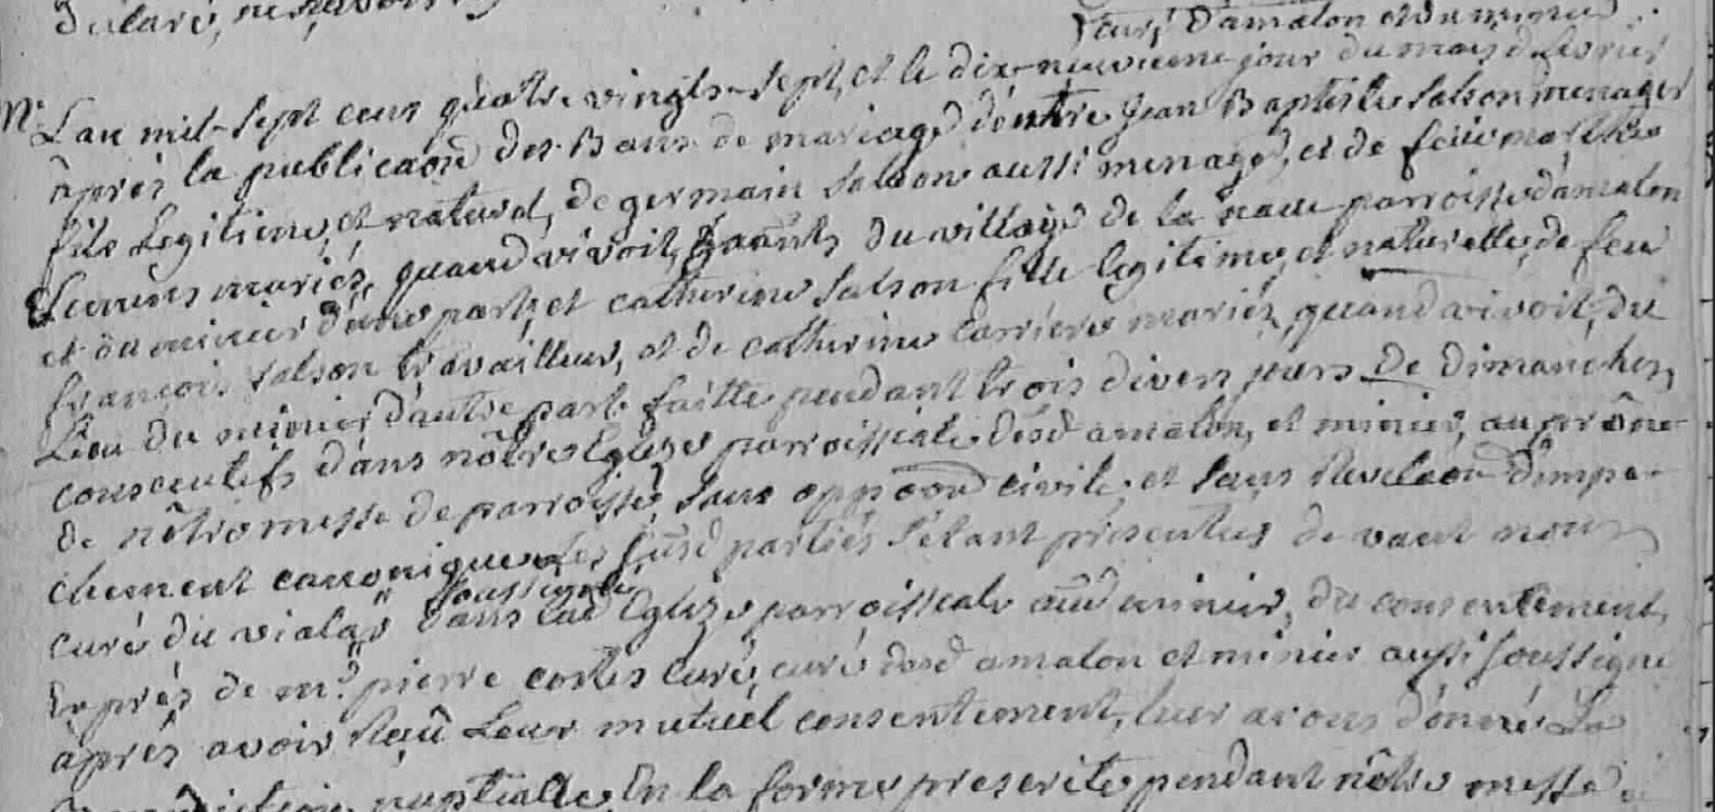 declaré, ne sçavoir
curé d'amalon et du minier
M. L'an mil-sept cens quatre vingts-sept, et le dix-neuvieme jour du mois de fevrier
âprés la publicaõn des Bans de mariage d'entre Jean Baptiste salson menager
fils Legitime, et naturel, de germain salson aussi menager, et de feüe marthe
mariés, quand vivoit, du village de la parroisse d'amalon
et du minier d'une part, et catherine salson fille legitime, et naturelle, de feu
françois salson travailleur, et de catherine carriere mariés, quand vivoit, du
Lieu du minier d'autre part faitte pendant trois divers jours de dimanches
consecutifs dans nôtre Eglize parroissiale desd amalon, et minier, au prône
de nôtre messe de parroisse, sans oppõon civile, et sans Revelaõn d'impe-
chement canonique Les susd parties s'étant presentées devant nous
curé du viala soussigné dans lad Eglize parroissiale aud minier, du consentement
Exprés de mr. pierre curé, curé desd amalon et minier aussi soussigné
aprés avoir Reçû Leur mutuel consentement, leur avons donné La
Benediction nuptialle, En la forme prescrite, pendant nôtre messe